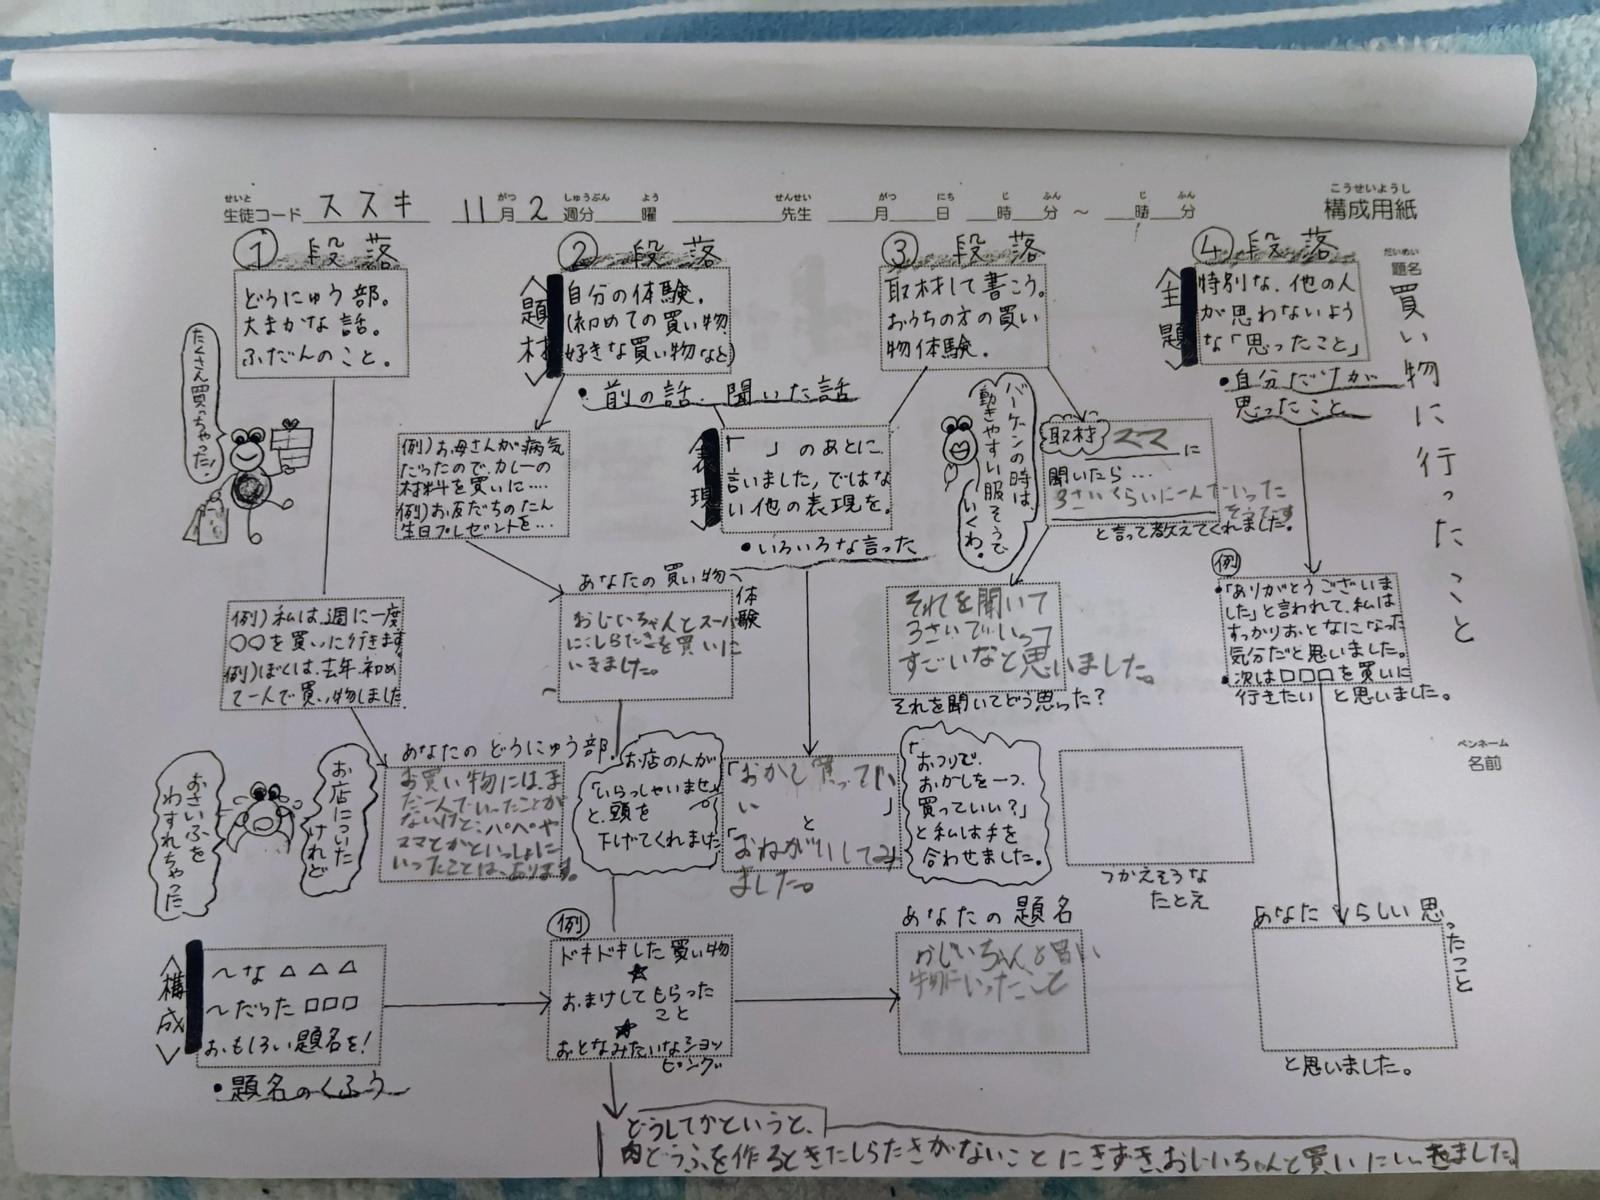 せいと
生徒コード ススキ 11月2週分 曜 先生 月 日 時 分 ～ 時 分
がつ しゅうぶん よう せんせい がつ にち じ ふん じ ふん
こうせいようし
構成用紙
だいめい
題名
買い物に行ったこと
ペンネーム
名前
①段落
どうにゅう部。
大まかな話。
ふだんのこと。
たくさん買っちゃった!
例)私は、週に一度
〇〇を買いに行きます。
例)ぼくは、去年、初め
て一人で買い物しました
あなたのどうにゅう部。
お買い物には、ま
だ一人でいったことが
ないけど、パペや
ママとかといっしょに
いったことは、あります。
お店についた
けれど
おさいふを
わすれちゃった
②段落
〈題材〉
自分の体験。
(初めての買い物、
好きな買い物など)
・前の話、聞いた話
例)お母さんが病気
だったので、カレーの
材料を買いに‥‥
例)お友だちのたん
生日プレゼントを‥‥
あなたの買い物体験
おじいちゃんとスーパー
にしらたきを買いに
いきました。
〈表現〉
「 」のあとに
言いました,ではな
い他の表現を。
・いろいろな言った
お店の人が
「いらっしゃいませ」
と、頭を
下げてくれました
「おかし買ってい
い 」
と
「おねがいしてみ
ました。
「おつりで、
おかしを一つ、
買っていい?」
と私は手を
合わせました。
③段落
取材して書こう。
おうちの方の買い
物体験。
バーゲンの時は、
動きやすい服そうで
いくわ。
取材 ママ に
聞いたら‥‥
3さいくらいに一人でいった
そうです
と言って教えてくれました。
それを聞いて
3さいでいって
すごいなと思いました。
それを聞いてどう思った?
つかえそうな
たとえ
④段落
〈主題〉
特別な、他の人
が思わないよう
な「思ったこと」
・自分だけが
思ったこと
例
・「ありがとうございま
した」と言われて、私は
すっかりおとなになった
気分だと思いました。
・次は□□□を買いに
行きたい と思いました。
あなたらしい思ったこと
と思いました。
〈構成〉
～な△△△
～だった□□□
おもしろい題名を!
・題名のくふう
例
ドキドキした買い物
★
おまけしてもらった
こと
★
おとなみたいなショッ
ピング
あなたの題名
おじいちゃんと買い
物にいったこと
どうしてかというと、
肉どうふを作るときたしらたきがないことにきずき、おじいちゃんと買いにいきました。